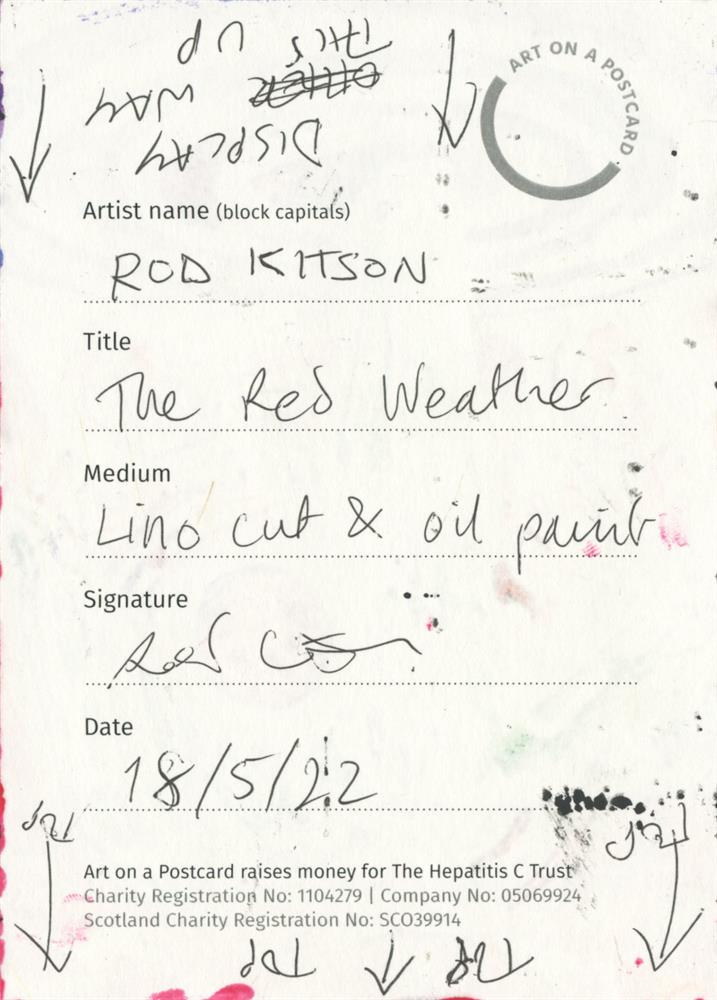 DISPLAY
WAY
THIS UP
ART ON A POSTCARD
Artist name (block capitals)
ROD KITSON
Title
The Red Weather
Medium
Lino cut & oil paint
Signature
Date
18/5/22
TOP
TOP
Art on a Postcard raises money for The Hepatitis C Trust
Charity Registration No: 1104279 | Company No: 05069924
Scotland Charity Registration No: SCO39914
TOP TOP